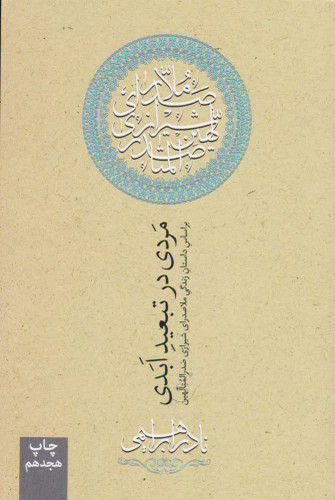 ملاصدرای شیرازی
صدرالمتألهین
مَردی در تبعیدِ اَبَدی
براساس داستان زندگیِ ملاصدرای شیرازی صدرالمُتِألّهین
نادر ابراهیمی
چاپ
هجدهم